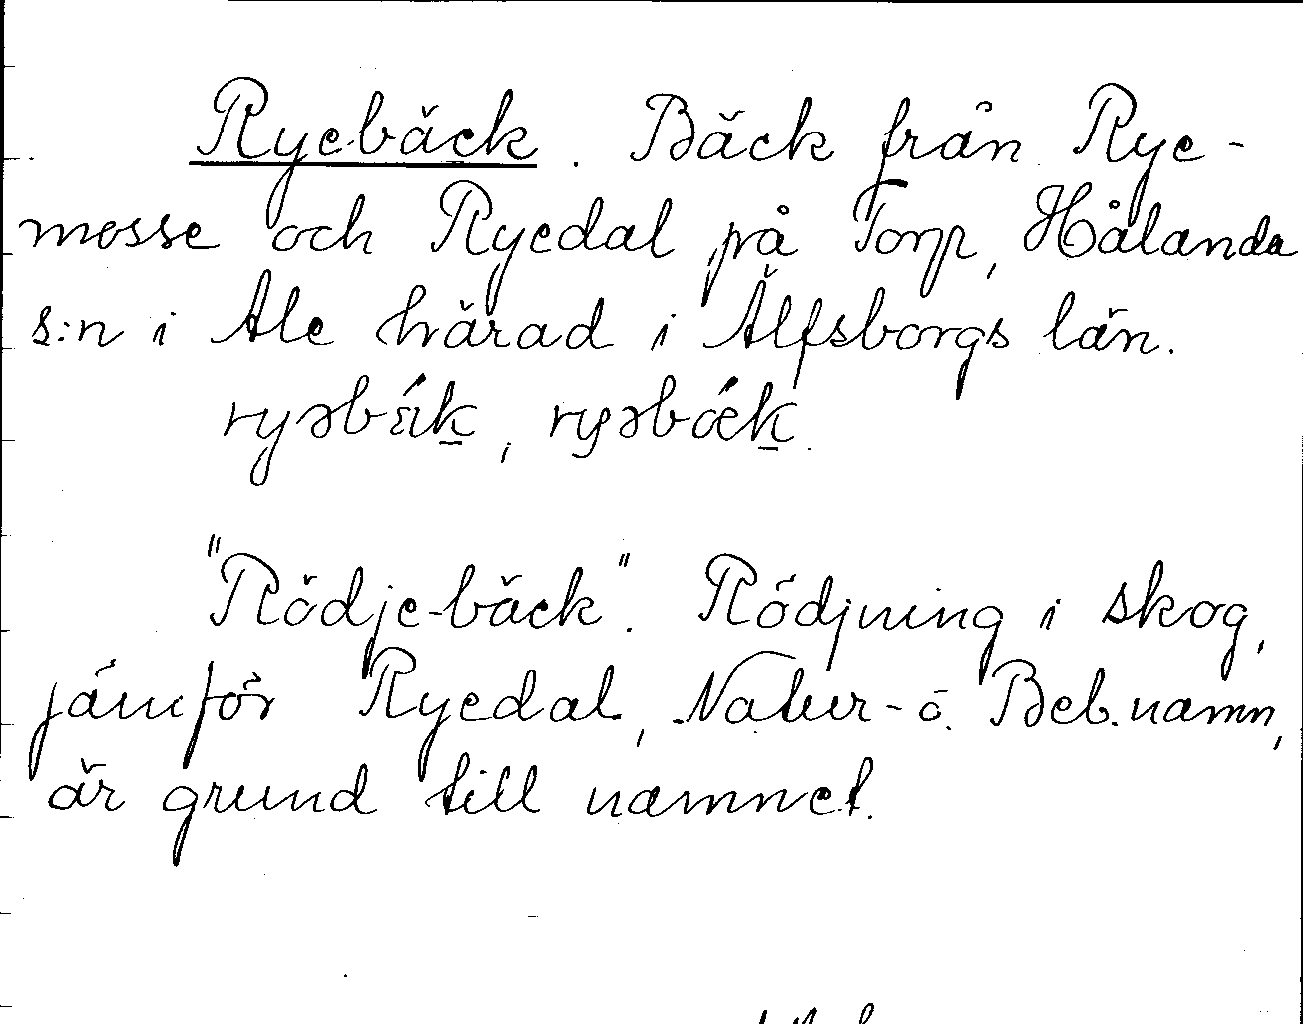 Ryebäck. Bäck från Rye-
mosse och Ryedal på Torp, Hålanda
s:n i Ale härad i Älfsborgs län.
ryəb
"Rödje-bäck". Rödjning i skog,
jämför Ryedal, Natur- o. Beb.namn,
är grund till namnet.